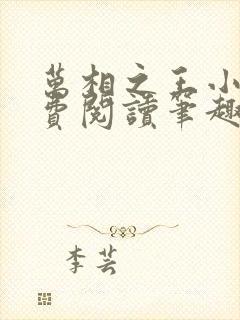 萬相之王小
費閱讀筆趣
李芸